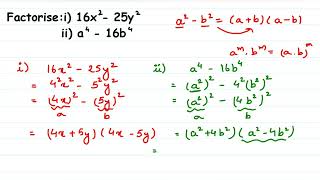 Factorise:i) 16x²- 25y²
ii) a⁴ - 16b⁴
a² - b² = (a+b)(a-b)
aᵐ. bᵐ = (a.b)ᵐ
i) 16x² - 25y²
= 4²x² - 5²y²
= (4x)² - (5y)²
a b
= (4x + 5y) (4x - 5y)
ii) a⁴ - 16b⁴
= (a²)² - 4²(b²)²
= (a²)² - (4b²)²
a b
= (a²+4b²)(a²-4b²)
=